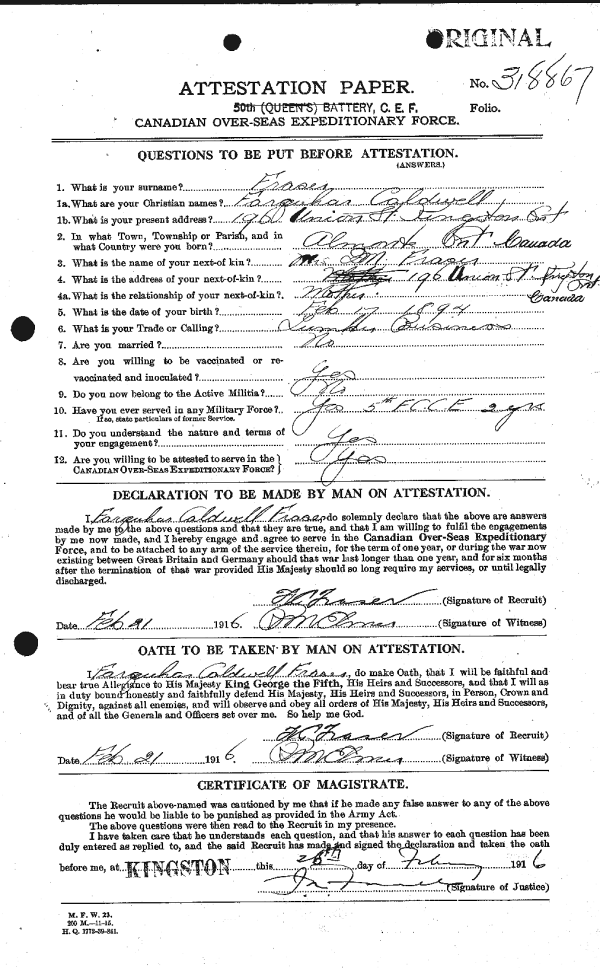 ORIGINAL
ATTESTATION PAPER. No. 318867
50th (QUEEN'S) BATTERY, C. E. F. Folio.
CANADIAN OVER-SEAS EXPEDITIONARY FORCE.
QUESTIONS TO BE PUT BEFORE ATTESTATION.
(ANSWERS.)
1. What is your surname? Fraser
1a. What are your Christian names? Farquhar Caldwell
1b. What is your present address? 196 Union St. Kingston Ont
2. In what Town, Township or Parish, and in
what Country were you born? Almonte Ont Canada
3. What is the name of your next-of kin? Fraser
4. What is the address of your next-of-kin? 196 Union St. Kingston Ont.
Canada
4a. What is the relationship of your next-of-kin? Mother
5. What is the date of your birth? Feb 17 1894
6. What is your Trade or Calling? Lumber Business
7. Are you married? No
8. Are you willing to be vaccinated or re-
vaccinated and inoculated? Yes
9. Do you now belong to the Active Militia? No
10. Have you ever served in any Military Force? Yes 5th F C C E 2 yrs
If so, state particulars of former Service.
11. Do you understand the nature and terms of
your engagement? Yes
12. Are you willing to be attested to serve in the
CANADIAN OVER-SEAS EXPEDITIONARY FORCE? Yes
DECLARATION TO BE MADE BY MAN ON ATTESTATION.
I, Farquhar Caldwell Fraser do solemnly declare that the above are answers
made by me to the above questions and that they are true, and that I am willing to fulfil the engagements
by me now made, and I hereby engage and agree to serve in the Canadian Over-Seas Expeditionary
Force, and to be attached to any arm of the service therein, for the term of one year, or during the war now
existing between Great Britain and Germany should that war last longer than one year, and for six months
after the termination of that war provided His Majesty should so long require my services, or until legally
discharged.
F C Fraser (Signature of Recruit)
Date Feb 21 1916 (Signature of Witness)
OATH TO BE TAKEN BY MAN ON ATTESTATION.
I, Farquhar Caldwell Fraser, do make Oath, that I will be faithful and
bear true Allegiance to His Majesty King George the Fifth, His Heirs and Successors, and that I will as
in duty bound honestly and faithfully defend His Majesty, His Heirs and Successors, in Person, Crown and
Dignity, against all enemies, and will observe and obey all orders of His Majesty, His Heirs and Successors,
and of all the Generals and Officers set over me. So help me God.
F C Fraser (Signature of Recruit)
Date Feb 21 1916 (Signature of Witness)
CERTIFICATE OF MAGISTRATE.
The Recruit above-named was cautioned by me that if he made any false answer to any of the above
questions he would be liable to be punished as provided in the Army Act.
The above questions were then read to the Recruit in my presence.
I have taken care that he understands each question, and that his answer to each question has been
duly entered as replied to, and the said Recruit has made and signed the declaration and taken the oath
before me, at KINGSTON this day of February 1916
(Signature of Justice)
M. F. W. 23.
200 M.—11-15.
H. Q. 1772-39-841.